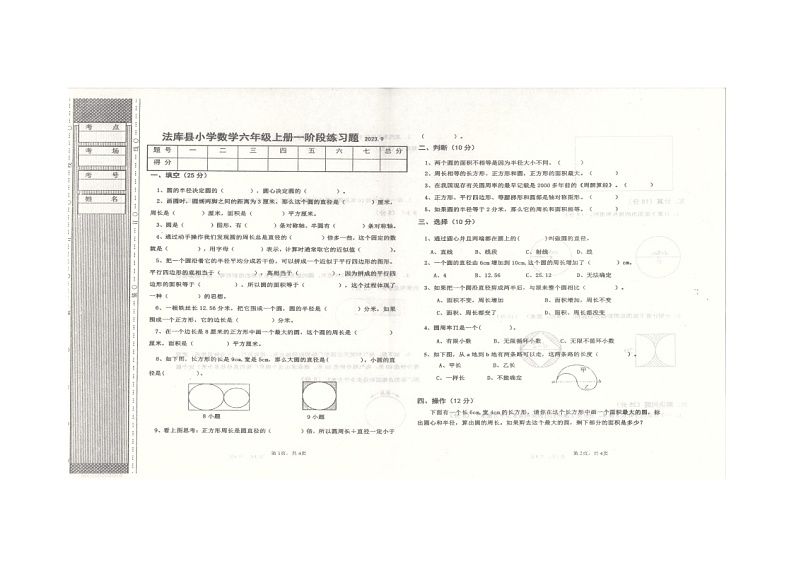 考 点
考 场
考 号
姓 名
法库县小学数学六年级上册一阶段练习题 2023.9
题 号 一 二 三 四 五 六 七 总 分
得 分
一、填空（25 分）
1、圆的半径决定圆的（ ），圆心决定圆的（ ）。
2、画圆时，圆规两脚之间的距离为 3 厘米，那么这个圆的直径是（ ）厘米，
周长是（ ）厘米，面积是（ ）平方厘米。
3、圆是（ ）图形，有（ ）条对称轴，半圆有（ ）条对称轴。
4、通过动手操作我们发现圆的周长总是直径的（ ）倍多一些，这个固定的数
就是（ ），用字母（ ）表示，计算时通常取它的近似值（ ）。
5、把一个圆沿着它的半径平均分成若干份，可以拼成一个近似于平行四边形的图形。
平行四边形的底相当于（ ），高相当于（ ），因为拼成的平行四
边形的面积等于（ ），所以圆的面积等于（ ），这个过程体现了
一种（ ）的思想。
6、一根铁丝长 12.56 分米，把它围成一个圆，圆的半径是（ ）分米。如果
围成一个正方形，它的边长是（ ）分米。
7、在一个边长是 8 厘米的正方形中画一个最大的圆，这个圆的周长是（ ）
厘米，面积是（ ）平方厘米。
8、如下图，长方形的长是 9cm,宽是 5cm，那么大圆的直径是（ ），小圆的直
径是（ ）。
8 小题
9 小题
9、看上图思考：正方形周长是圆直径的（ ）倍，所以圆周长÷直径一定小于
第 1 页，共 4 页
（ ）。
二、判断（10 分）
1、两个圆的面积不相等是因为半径大小不同。（ ）
2、周长相等的长方形、正方形和圆，正方形的面积最大。（ ）
3、在我国现存有关圆周率的最早记载是 2000 多年前的《周髀算经》。（ ）
4、正方形、平行四边形、等腰梯形和圆都是轴对称图形。（ ）
5、如果圆的半径等于 2 分米，那么它的周长和面积相等。（ ）
三、选择（10 分）
1、通过圆心并且两端都在圆上的（ ）叫做圆的直径。
A、直线 B、线段 C、射线 D、弦
2、一个圆的直径由 6cm 增加到 10cm,这个圆的周长增加了（ ）cm。
A、4 B、12.56 C、25.12 D、无法确定
3、如果把一个圆沿直径剪成两半后，与原来整个圆相比（ ）。
A、面积不变，周长增加 B、面积增加，周长不变
C、面积、周长都变了 D、面积、周长都没变
4、圆周率π是一个（ ）。
A、有限小数 B、无限循环小数 C、无限不循环小数
5、如下图，从 a 地到 b 地有两条路可以走，这两条路的长度（ ）。
A、甲长 B、乙长
C、一样长 D、不能确定
四、操作（12 分）
下面有一个长 6cm,宽 4cm 的长方形，请你在这个长方形中画一个面积最大的圆，标
出圆心和半径，算出圆的周长，如果剪去这个最大的圆，剩下部分的面积是多少？
第 2 页，共 4 页